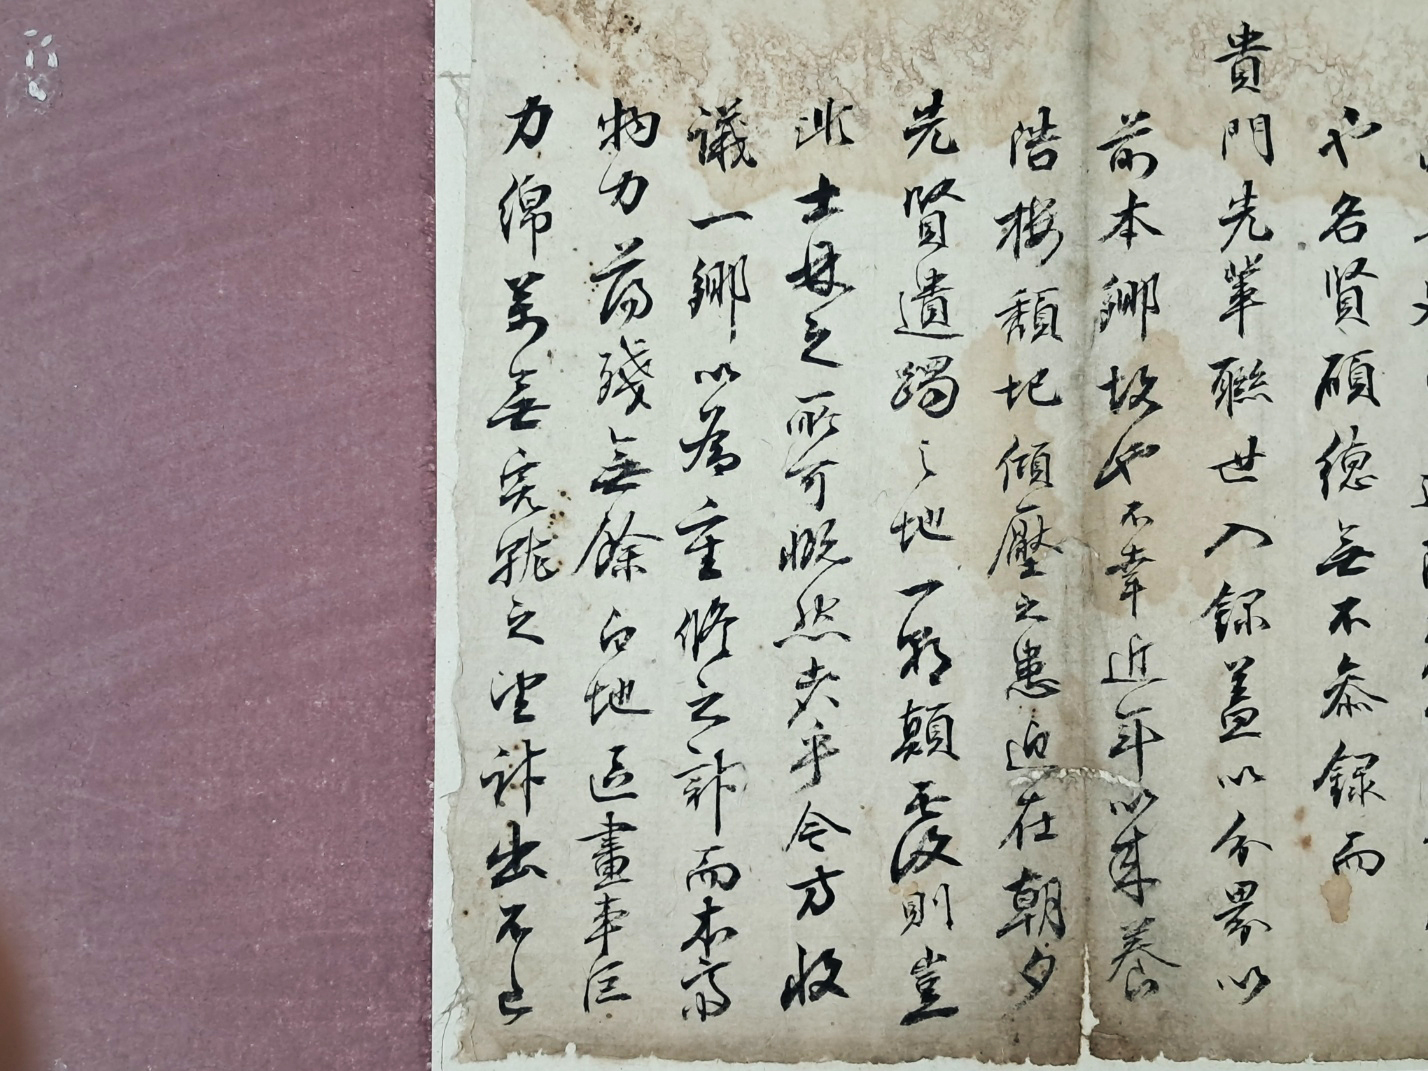 也名賢碩德無不參錄而
貴門先輩聯世入錄蓋以分界以
前本鄉故也不幸近年以來養
浩樓頹圮傾壓之患迫在朝夕
先賢遺躅之地一朝顛覆則豈
此士林之所可慨然者乎今方收
議一鄉以爲重修之計而本齋
物力蕩殘無餘白地區畫事巨
力綿萬無完就之望計出不已